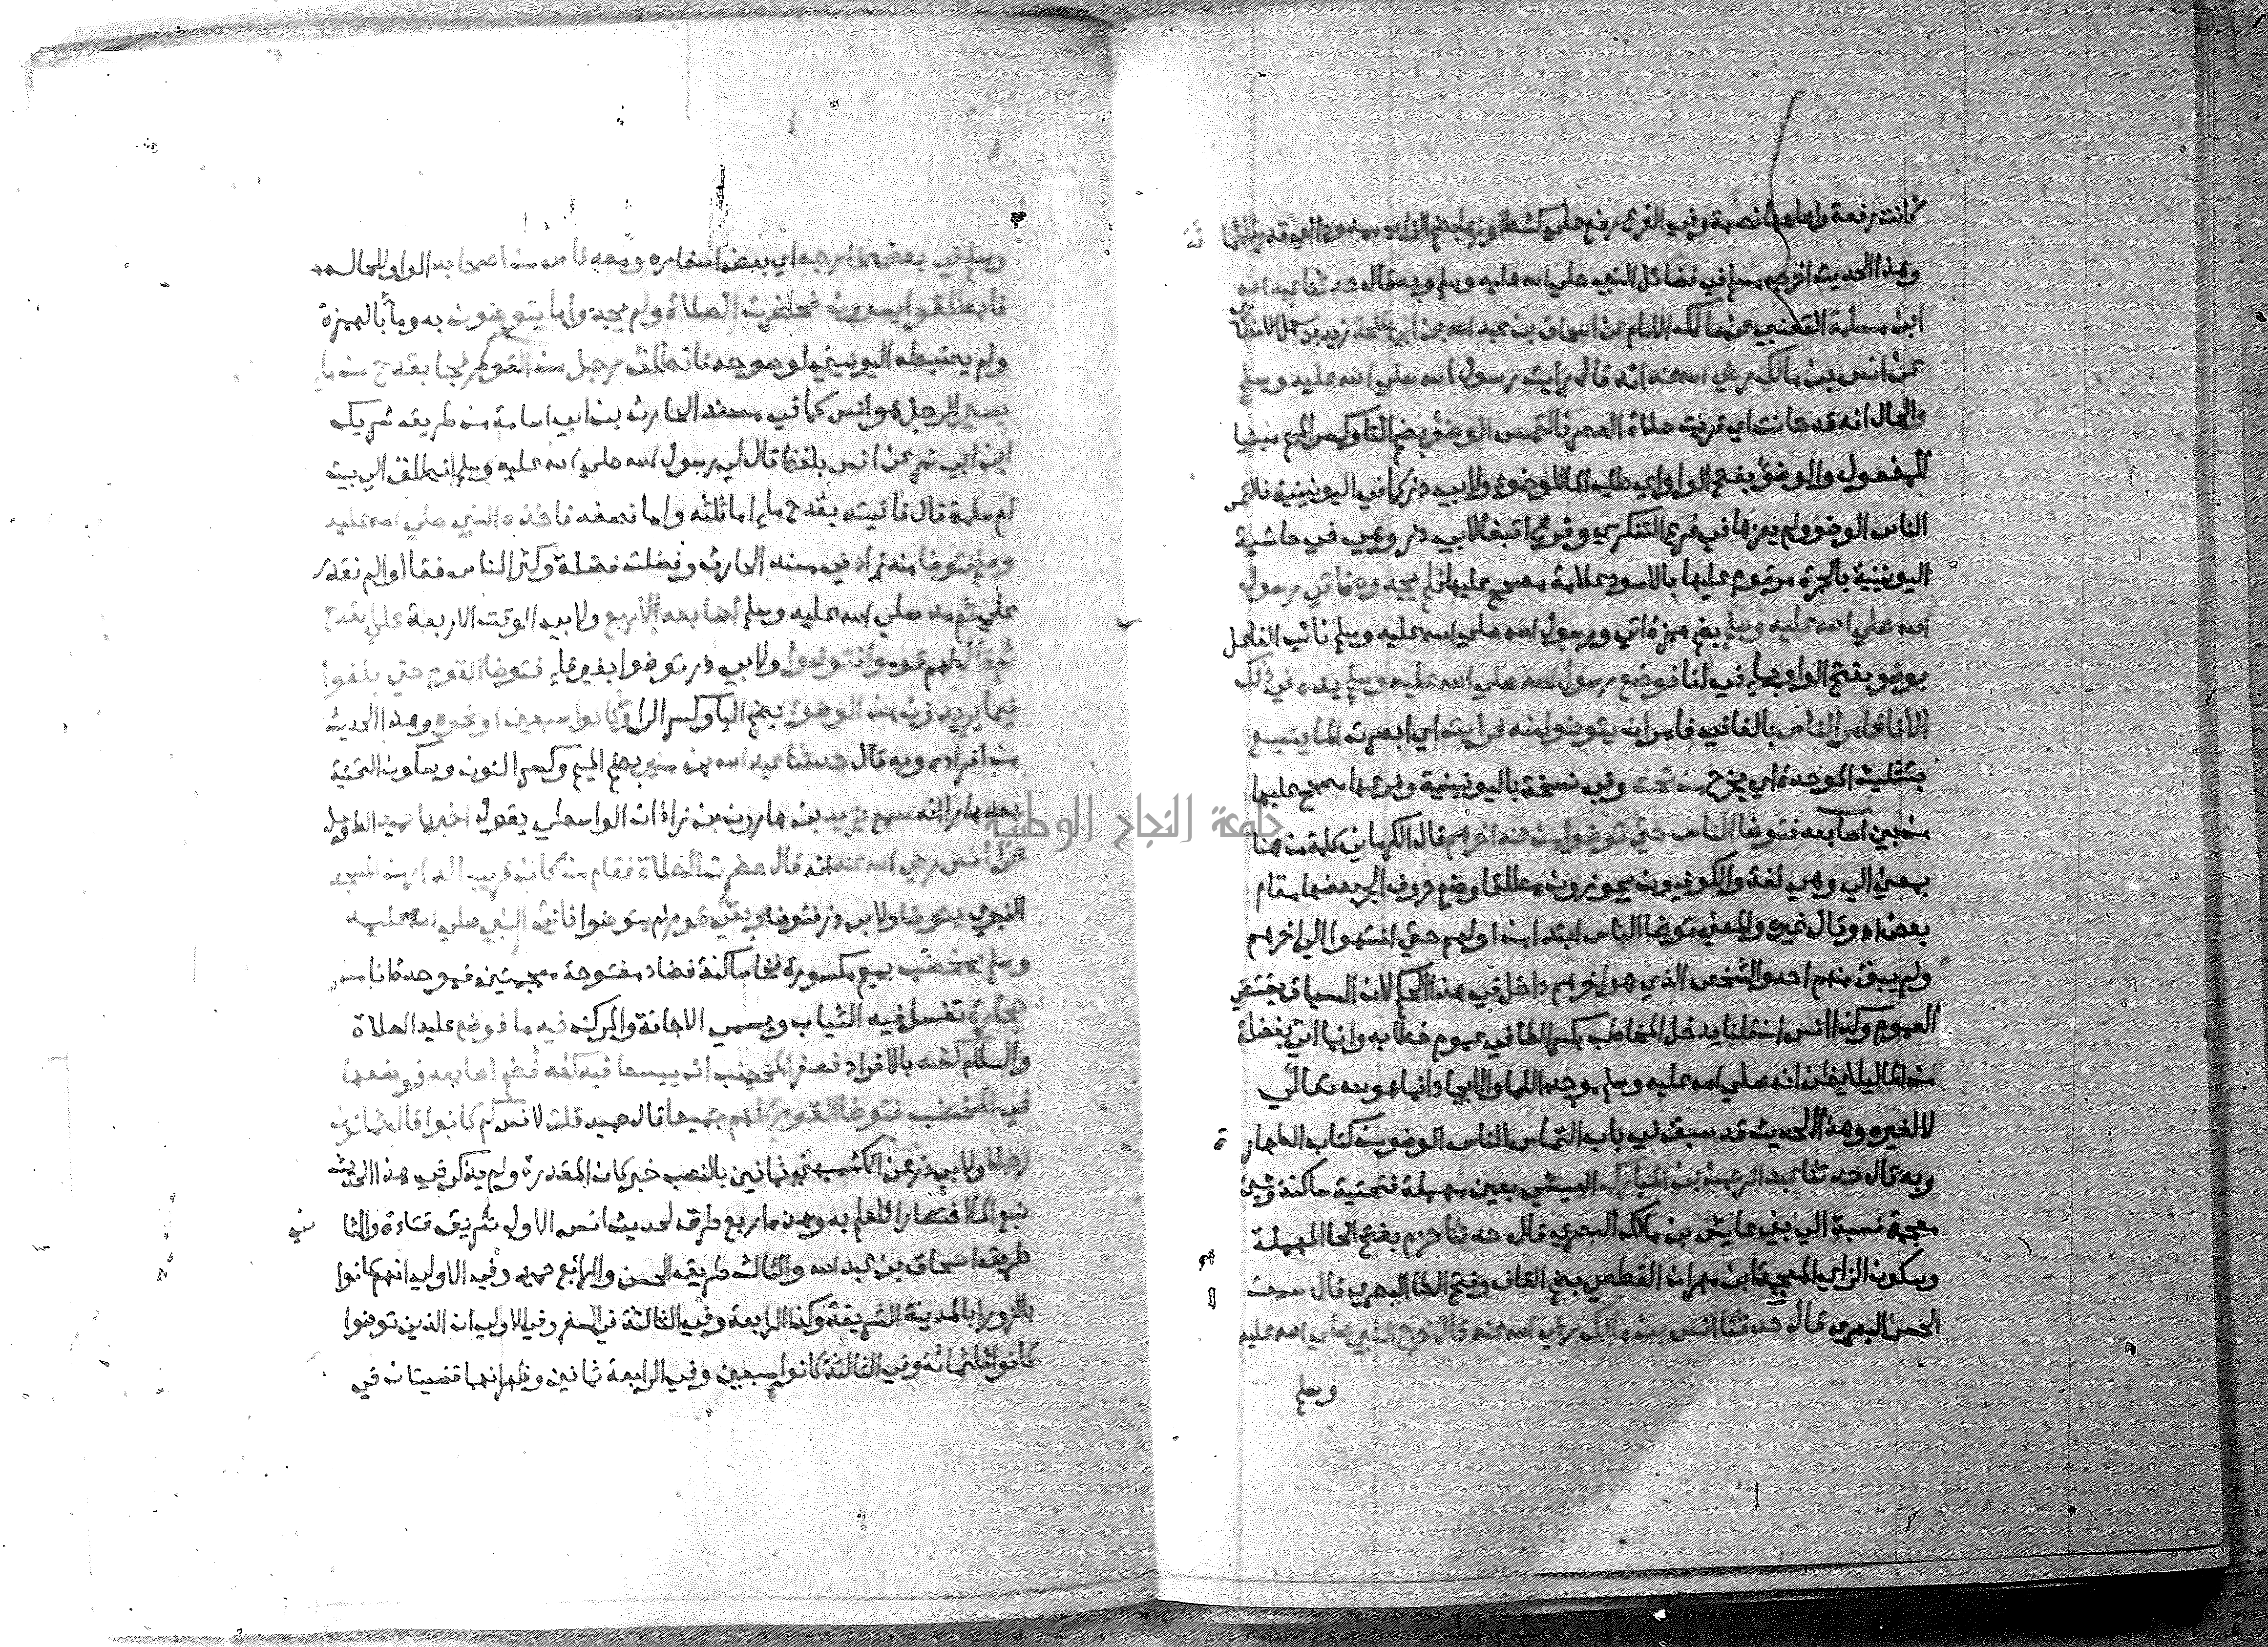 كانت رفعة واصلحها نصبة وفي الفرع رفع علي كشط او زها بضم الزاي ممدودا اي قدر ثلثماية
وهذا الحديث اخرجه مسلم في فضائل النبي صلي الله عليه وسلم وبه قال حدثنا عبد الله
ابن مسلمة القعنبي عن مالك الامام عن اسحاق بن عبد الله بن ابي طلحة زيد بن سهل الانصاري
عن انس بن مالك رضي الله عنه انه قال رايت رسول الله صلي الله عليه وسلم
والحال انه قد حانت اي قربت صلاة العصر فالتمس الوضؤ بضم التا وكسر الميم مبنيا
للمفعول والوضؤ بفتح الواو اي طلب الما للوضوء ولابي ذر كما في اليونينية فالتمس
الناس الوضو ولم يعزها في فرع التنكزي وفرع اقبغا لابي ذر وهي في حاشية
اليونينية بالحمرة مرقوم عليها بالاسود علامة مصحح عليها فلم يجدوه فاتي رسول
الله صلي الله عليه وسلم بضم همزة اتي ورسول الله صلي الله عليه وسلم نائب الفاعل
بوضو بفتح الواو بماء في انا فوضع رسول الله صلي الله عليه وسلم يده في ذلك
الانا فامر الناس بالفا في فامر ان يتوضوا منه فرايت اي ابصرت الما ينبع
بتثليث الموحدة اي يخرج من تحت وفي نسخة باليونينية وفرعها مصحح عليها
من بين اصابعه فتوضا الناس حتي توضوا من عند اخرهم قال الكرماني كلمة من هنا
بمعني الي وهي لغة والكوفيون يجوزون مطلقا وضع حروف الجر بعضها مقام
بعض اه وقال غيره والمعني توضا الناس ابتدا من اولهم حتي انتهوا الي اخرهم
ولم يبق منهم احد والشخص الذي هو اخرهم داخل في هذا الحكم لان السياق يقتضي
العموم وكذا انس ان قلنا يدخل المخاطب بكسر الطا في عموم خطابه وانما اتي بفضلة
من الما ليلا يظن انه صلي الله عليه وسلم موجد للما والايجاد انما هو بعد تعالي
لا لغيره وهذا الحديث قد سبق في باب التماس الناس الوضو من كتاب الطهارة
وبه قال حدثنا عبد الرحمن بن المبارك العيشي بعين مهملة فتحتية ساكنة وشين
معجمة نسبة الي بني عايش بن مالك البصري قال حدثنا حزم بفتح الحا المهملة
وسكون الزاي المعجمة ابن مهران القطعي بضم القاف وفتح الطا البصري قال سمعت
الحسن البصري قال حدثنا انس بن مالك رضي الله عنه قال خرج النبي صلي الله عليه
وسلم
وسلم في بعض مخارجه اي بعض اسفاره ومعه ناس من اصحابه الواو للحال
فانطلقوا يسيرون فحضرت الصلاة ولم يجدوا ما يتوضئون به وما بالهمزة
ولم يضبطه اليونيني لوضوحه فانطلق رجل من القوم فجا بقدح من ماء
يسير الرجل هو انس كما في مسند الحارث بن ابي اسامة من طريق شريك
ابن ابي نمر عن انس بلفظ قال لي رسول الله صلي الله عليه وسلم انطلق الي بيت
ام سلمة قال فاتيته بقدح ماء اما ثلثه واما نصفه فاخذه النبي صلي الله عليه
وسلم فتوضا منه زاد في مسند الحارث وفضلت فضلة وكثر الناس فقالوا لم نقدر
علي ثم مد صلي الله عليه وسلم اصابعه الاربع ولابي الوقت الاربعة علي القدح
ثم قال لهم قوموا فتوضوا ولابي ذر توضوا بغير فاء فتوضا القوم حتي بلغوا
فيما يريدون من الوضوء بضم اليا وكسر الرا وكانوا سبعين او نحوه وهذا الحديث
من افراده وبه قال حدثنا عبد الله بن منير بضم الميم وكسر النون وسكون التحتية
بعدها را انه سمع يزيد بن هارون بن زاذان الواسطي يقول اخبرنا حميد الطويل
عن انس رضي الله عنه انه قال حضرت الصلاة فقام من كان قريب الدار من المسجد
النبوي يتوضا ولابي ذر فتوضا وبقي قوم لم يتوضوا فاتي النبي صلي الله عليه
وسلم بمخضب بميم مكسورة فخا ساكنة فضاد مفتوحة معجمتين فموحدة انا من
حجارة تغسل فيه الثياب ويسمي الاجانة والمركن فيه ما فوضع عليه الصلاة
والسلام كفه بالافراد فصغر المخضب ان يبسط فيه كفه فضم اصابعه فوضعها
في المخضب فتوضا القوم كلهم جميعا قال حميد قلت لانس كم كانوا قال ثمانون
رجلا ولابي ذر عن الكشميهني ثمانين بالنصب خبر كان المقدرة ولم يذكر في هذا الحديث
نبع الما اختصارا للعلم به وهذه اربع طرق لحديث انس الاول طريق قتادة والثاني
طريق اسحاق بن عبد الله والثالث طريق الحسن والرابع حميد وفي الاولي انهم كانوا
بالزورا بالمدينة الشريفة وكذا الرابعة وفي الثالثة في السفر وفي الاولي ان الذين توضوا
كانوا ثلثمائة وفي الثالثة كانوا سبعين وفي الرابعة ثمانين وظهر انهما قضيتان في
جامعة النجاح الوطنية